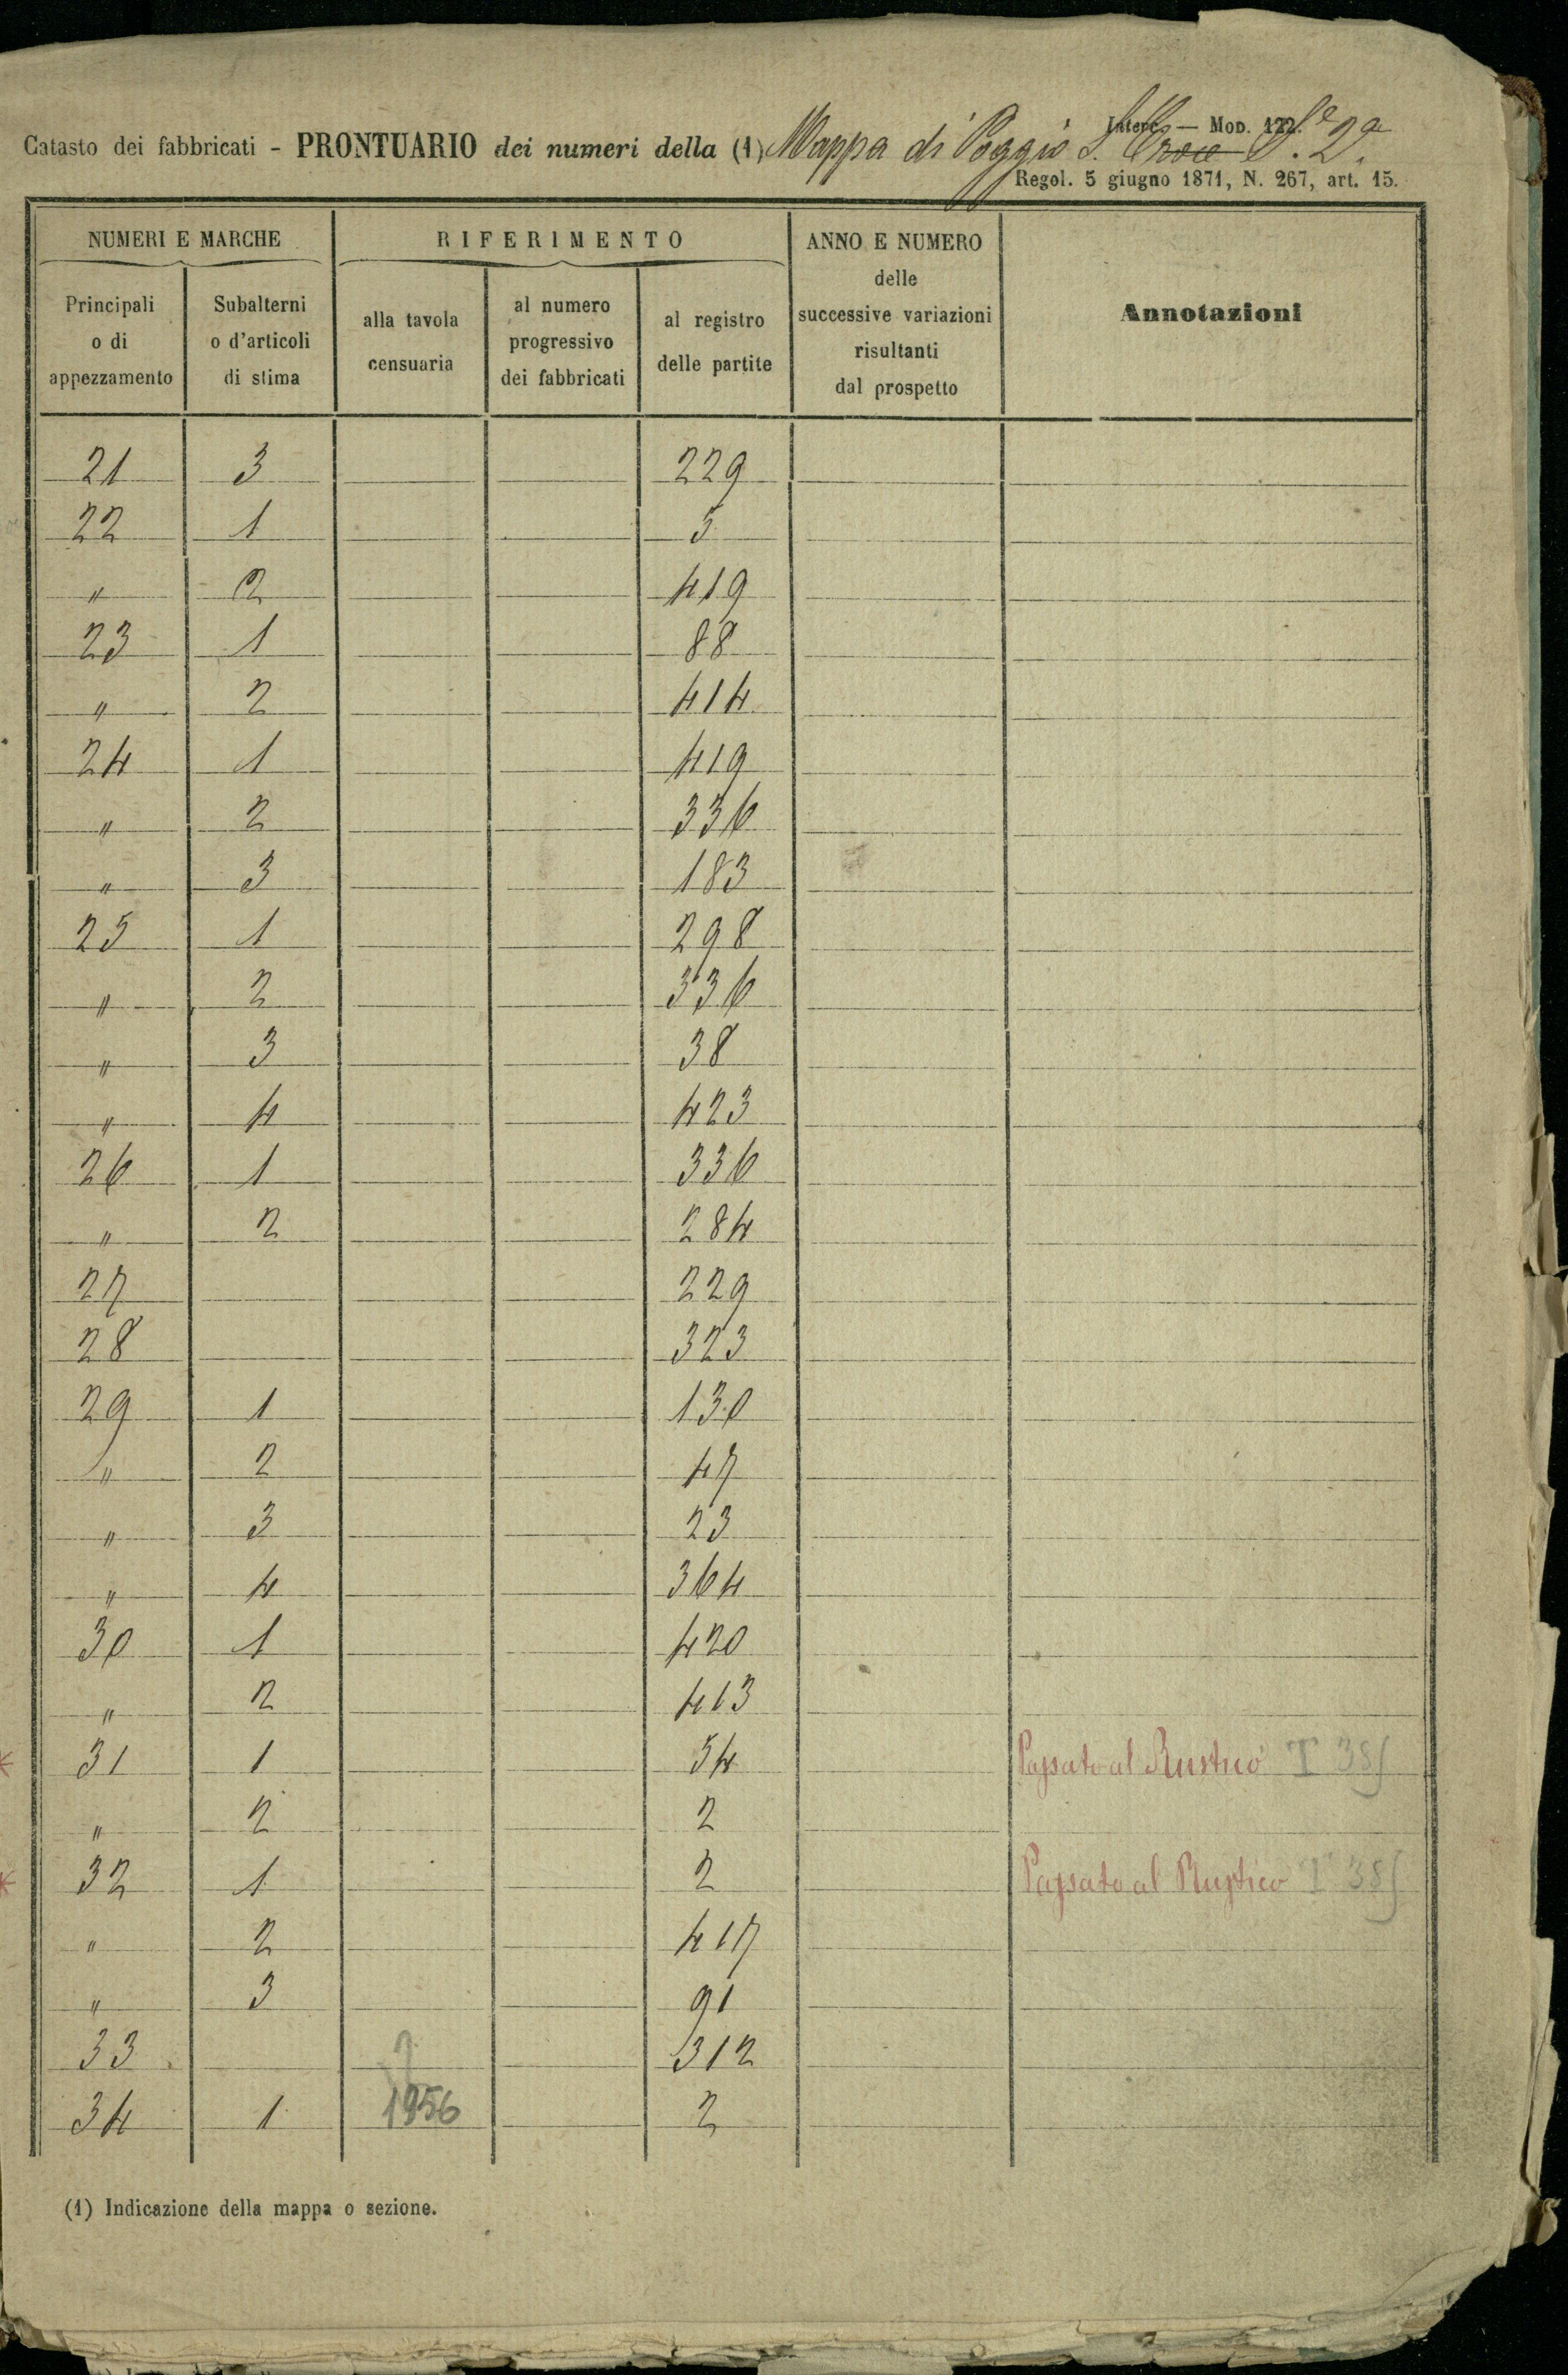 Interc. — Mod. 122.
Catasto dei fabbricati - PRONTUARIO dei numeri della (1) Mappa di Poggio S. Croce S.e 2a
Regol. 5 giugno 1871, N. 267, art. 15.
NUMERI E MARCHE RIFERIMENTO ANNO E NUMERO delle successive variazioni risultanti dal prospetto Annotazioni
Principali o di appezzamento Subalterni o d'articoli di stima alla tavola censuaria al numero progressivo dei fabbricati al registro delle partite
21 3 229
22 1 5
" 2 419
23 1 88
" 2 414
24 1 419
" 2 336
" 3 183
25 1 298
" 2 336
" 3 38
" 4 423
26 1 336
" 2 284
27 229
28 323
29 1 130
" 2 47
" 3 23
" 4 364
30 1 420
" 2 413
31 1 54 Passato al Rustico T 38
" 2 2
32 1 2 Passato al Rustico T 38
" 2 417
" 3 91
33 312
34 1 1956 2
(1) Indicazione della mappa o sezione.